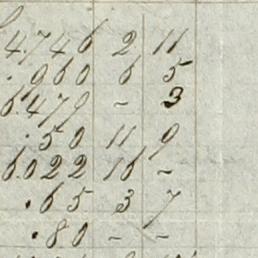 4.746 2 11
.960 6 5
6.479 - 3
.50 11 9
6.022 16 -
.65 3 7
.80 - -